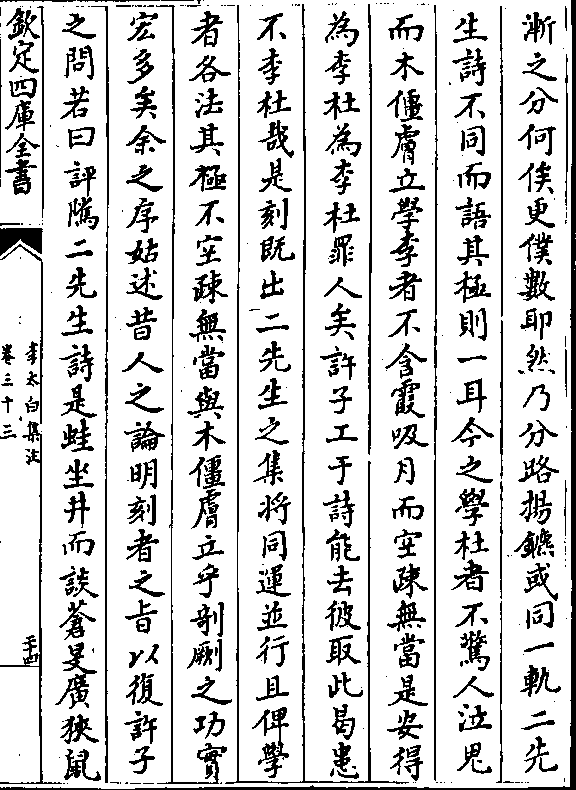 漸之分何俟更僕數耶然乃分路揚鑣或同一軌二先
生詩不同而語其極則一耳今之學杜者不驚人泣鬼
而木僵膚立學李者不含霞吸月而空疎無當是安得
為李杜為李杜罪人矣許子工于詩能去彼取此曷患
不李杜哉是刻既出二先生之集将同運並行且俾學
者各法其極不空疎無當與木僵膚立乎剞劂之功實
宏多矣余之序姑述昔人之論明刻者之旨以復許子
之問若曰評隲二先生詩是蛙坐井而談蒼旻廣狹鼠
欽定四庫全書
李太白集注
卷三十三
二十四